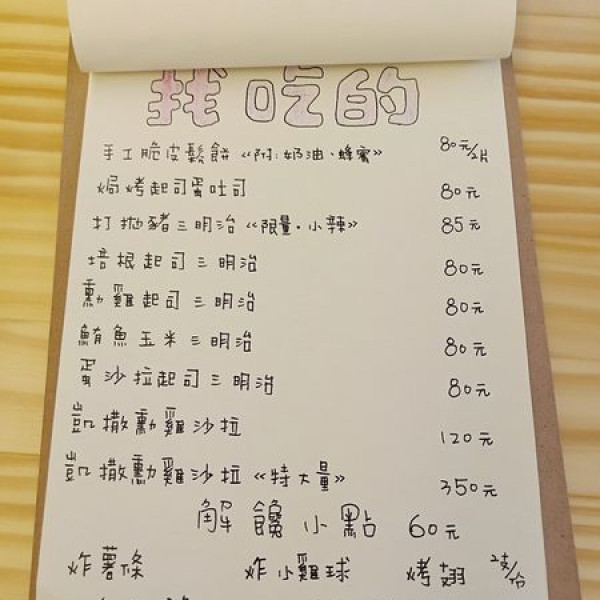 找吃的
手工脆皮鬆餅《附:奶油、蜂蜜》 80元/2片
焗烤起司蛋吐司 80元
打拋豬三明治《限量·小辣》 85元
培根起司三明治 80元
勳雞起司三明治 80元
鮪魚玉米三明治 80元
蛋沙拉起司三明治 80元
凱撒勳雞沙拉 120元
凱撒勳雞沙拉《特大量》 350元
解饞小點 60元
炸薯條 炸小雞球 烤翅 2支/份